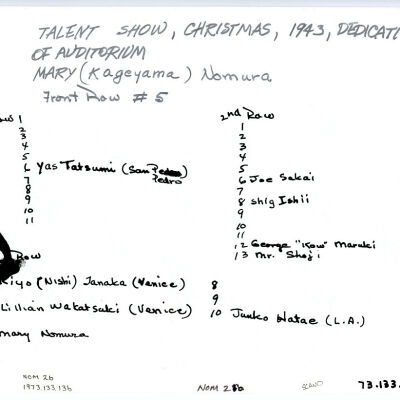 TALENT SHOW, CHRISTMAS, 1943, DEDICATI
OF AUDITORIUM
MARY (Kageyama) Nomura
Front Row # 5
ow 1
2
3
4
5
6 Yas Tatsumi (San Pedro)
7 Pedro
8
9
10
11
2nd Row
1
2
3
4
5
6 Joe Sakai
7
8 Shig Ishii
9
10
11
12 George "Kow" Maruki
13 Mr. Shoji
Row
Kiyo (Nishi) Tanaka (Venice)
Lillian Wakatsuki (Venice)
mary Nomura
8
9
10 Junko Hatae (L.A.)
NOM 2b
1973.133.13b
NOM 2b
SCAN'D
73.133.